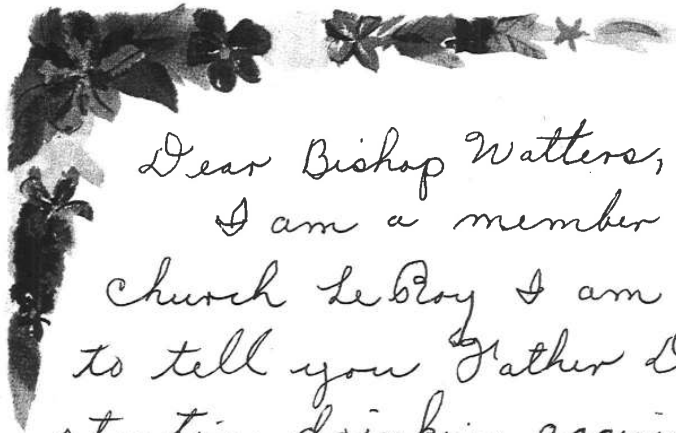 Dear Bishop Watters,
I am a member
church LeRoy I am
to tell you Father D
drinking again